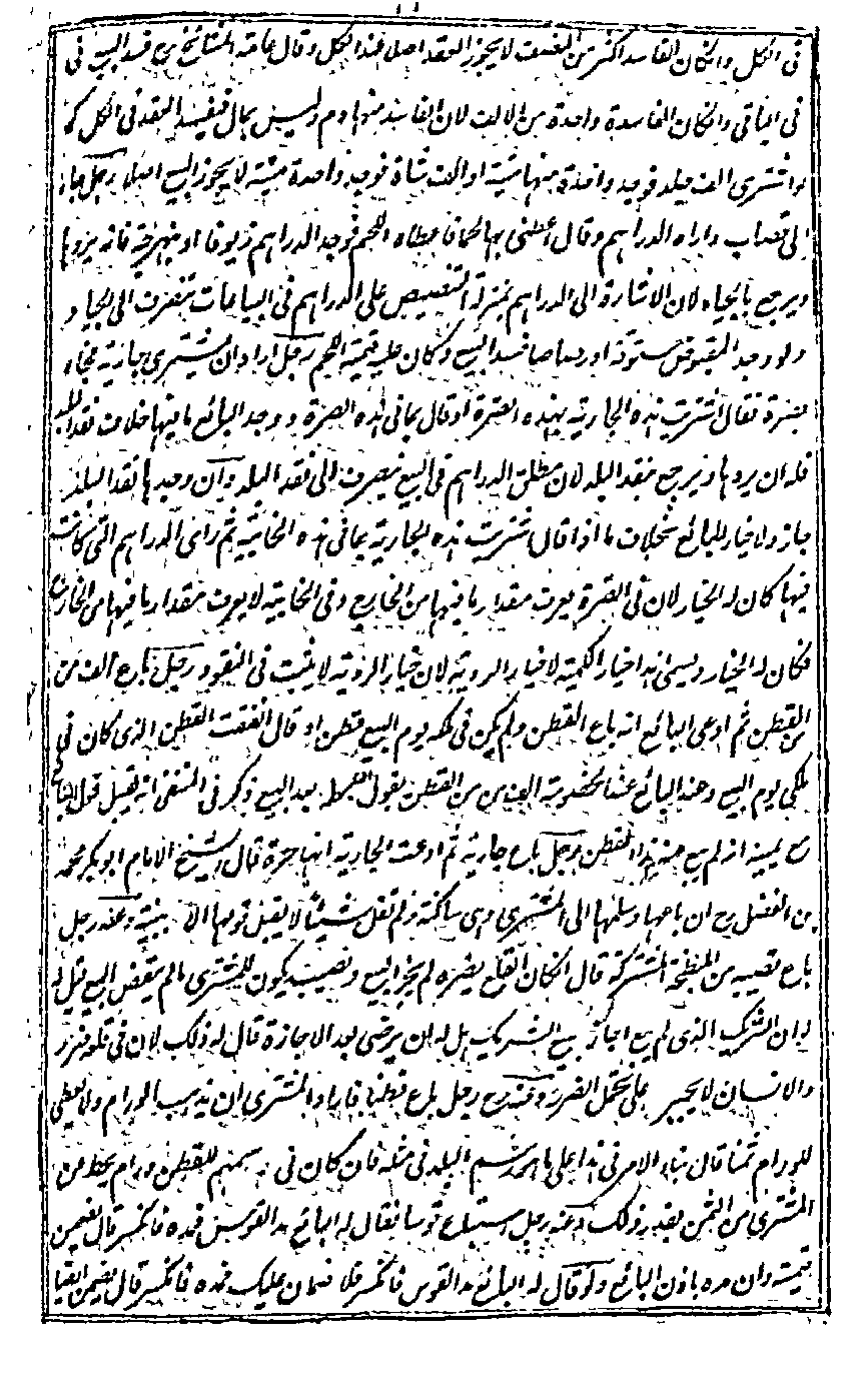 فى الكل وان كان الفاسد اكثر من النصف لا يجوز العقد اصلا عند الكل وقال عامة المشائخ رح فسد البيع فى
فى الباقى وان كان الفاسدة واحدة من الالف لان الفاسد منها دم وليس بمال فيفسد العقد فى الكل كما
لو اشترى الف جلد فوجد واحدة منها ميتة او الف شاة فوجد واحدة ميتة لا يجوز البيع اصلا رجل جاء
الى قصاب واراه الدراهم وقال اعطنى بها لحما فاعطاه اللحم فوجد الدراهم زيوفا او نبهرجة فانه يردها
ويرجع بالجياد لان الاشارة الى الدراهم بمنزلة التنصيص على الدراهم فى البياعات تنصرف الى الجياد
ولو وجد المقبوض ستوقة او رصاصا فسد البيع وكان عليه قيمة اللحم رجل اراد ان يشترى جارية فجاء
بصرة فقال اشتريت هذه الجارية بهذه الصرة او قال بما فى هذه الصرة ووجد البائع ما فيها خلاف نقد البلد
فله ان يردها ويرجع بنقد البلد لان مطلق الدراهم فى البيع ينصرف الى نقد البلد وان وجدها نقد البلد
جاز ولا خيار للبائع بخلاف ما اذا قال اشتريت هذه الجارية بما فى هذه الخابية ثم راى الدراهم التى كانت
فيها كان له الخيار لان فى الصرة يعرف مقدار ما فيها من الخارج وفى الخابية لا يعرف مقدار ما فيها من الخارج
فكان له الخيار ويسمى هذا خيار الكمية لا خيار الروية لان خيار الروية لا يثبت فى النقود رجل باع الف من
من القطن ثم ادعى البائع انه باع القطن ولم يكن فى ملكه يوم البيع قطن او قال انفقت القطن الذى كان فى
ملكى يوم البيع وعند البائع عند الخصومة الف من من القطن يقول بعد البيع ذكر فى المنتقى انه يقبل قول البائع
مع يمينه انه لم يبع منه هذا القطن رجل باع جارية ثم ادعت الجارية انها حرة قال الشيخ الامام ابو بكر محمد
بن الفضل رح ان باعها وسلمها الى المشترى وهى ساكتة ولم تقل شيئا لا يقبل قولها الا ببينة وعنه رجل
باع نصيبه من المبطخة المشتركة قال ان كان القلع يضره لم يجز البيع ونصيبه يكون للمشترى ما لم ينقض البيع قيل له
لو ان الشريك الذى لم يبع اجاز بيع الشريك هل له ان يرضى بعد الاجازة قال له ذلك لان فى قلعه ضرر
والانسان لا يجبر على تحمل الضرر وعنه رح رجل باع قطنا فاراد المشترى ان يذهب الورام ولا يعطى
للورام ثمنا قال بناء الامر فى هذا على ما هو رسم البلد فى مثله فان كان فى رسمهم للقطن ورام يحط عن
المشترى من الثمن بقدر ذلك وعنه رجل استباع قوسا فقال له البائع مد القوس فمده فانكسر قال يضمن
قيمته وان مده باذن البائع ولو قال له البائع مد القوس فانكسر فلا ضمان عليك فمده فانكسر قال يضمن ايضا